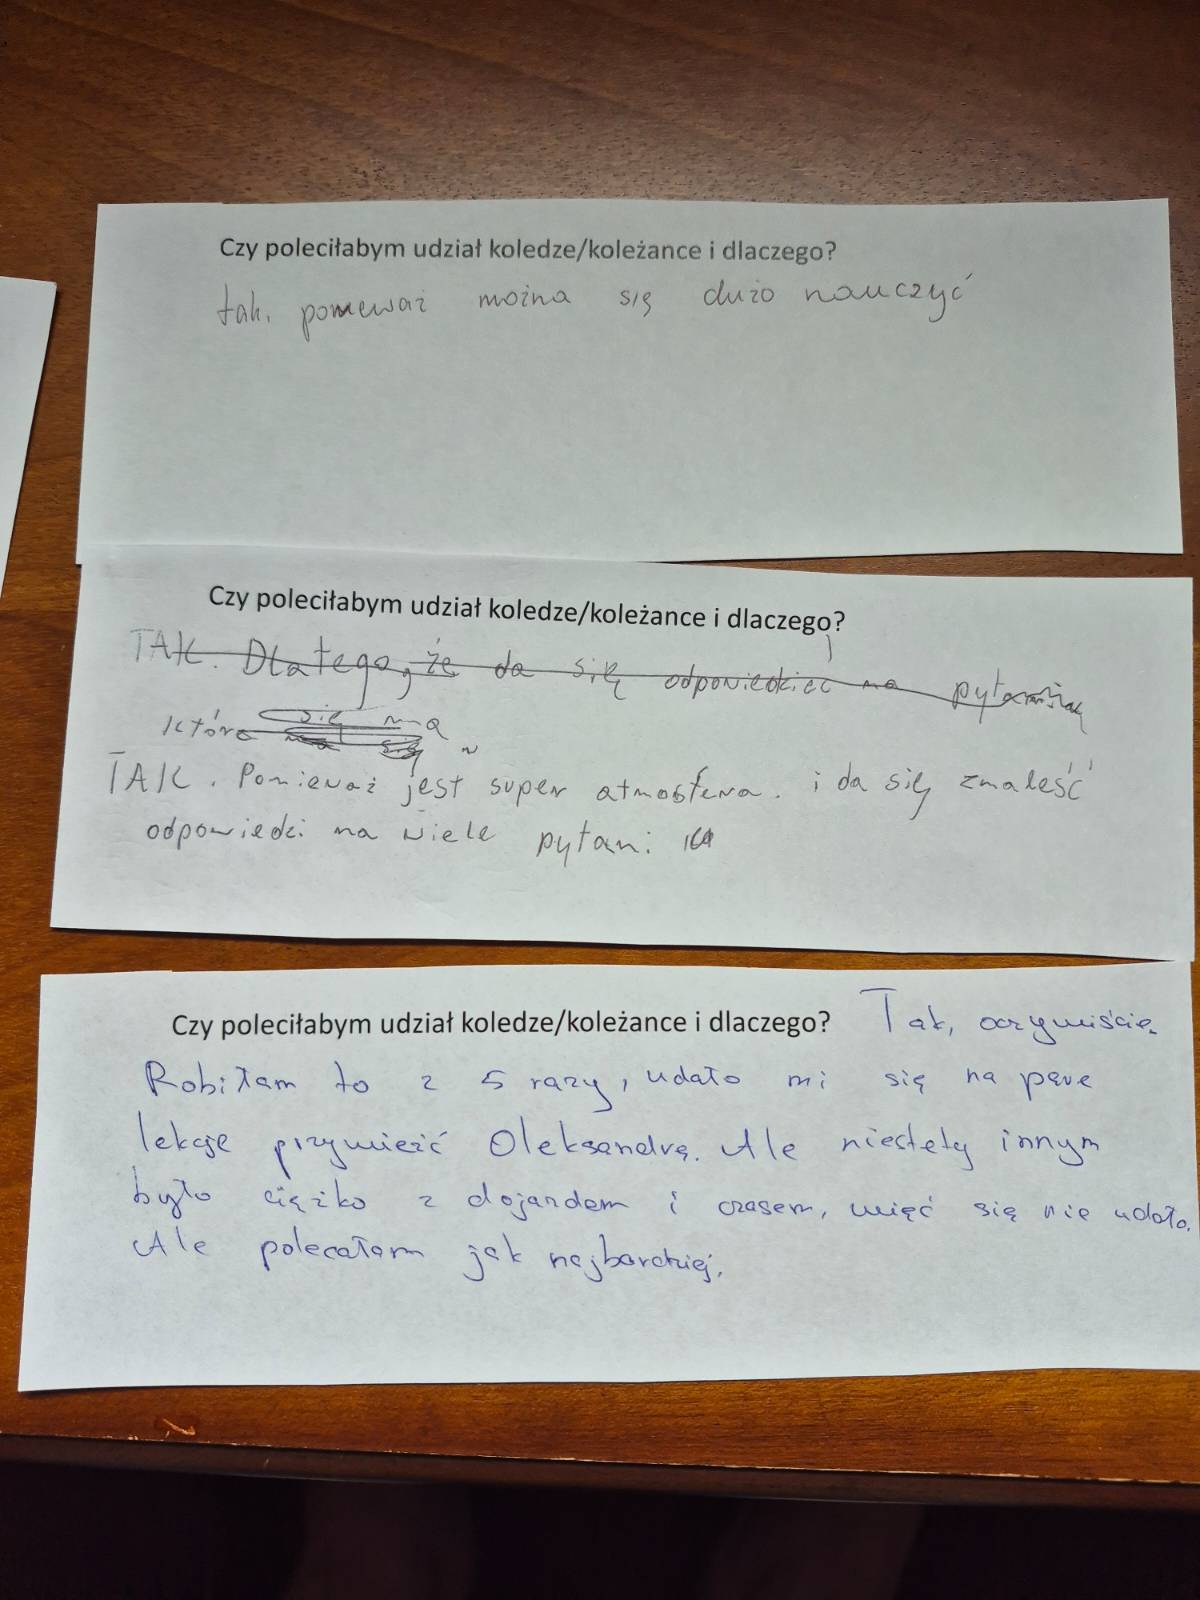 Czy poleciłabym udział koledze/koleżance i dlaczego?
tak, ponieważ można się dużo nauczyć
Czy poleciłabym udział koledze/koleżance i dlaczego?
TAK. Dlatego, że da się odpowiedzieć na
które się ma
TAK. Ponieważ jest super atmosfera. i da się znaleść
odpowiedzi na wiele pytań.
Czy poleciłabym udział koledze/koleżance i dlaczego? Tak, oczywiście.
Robiłam to z 5 razy, udało mi się na parę
lekcje przywieźć Oleksandrę. Ale niestety innym
było ciężko z dojazdem i czasem, więć się nie udało.
Ale polecałam jak najbardziej.